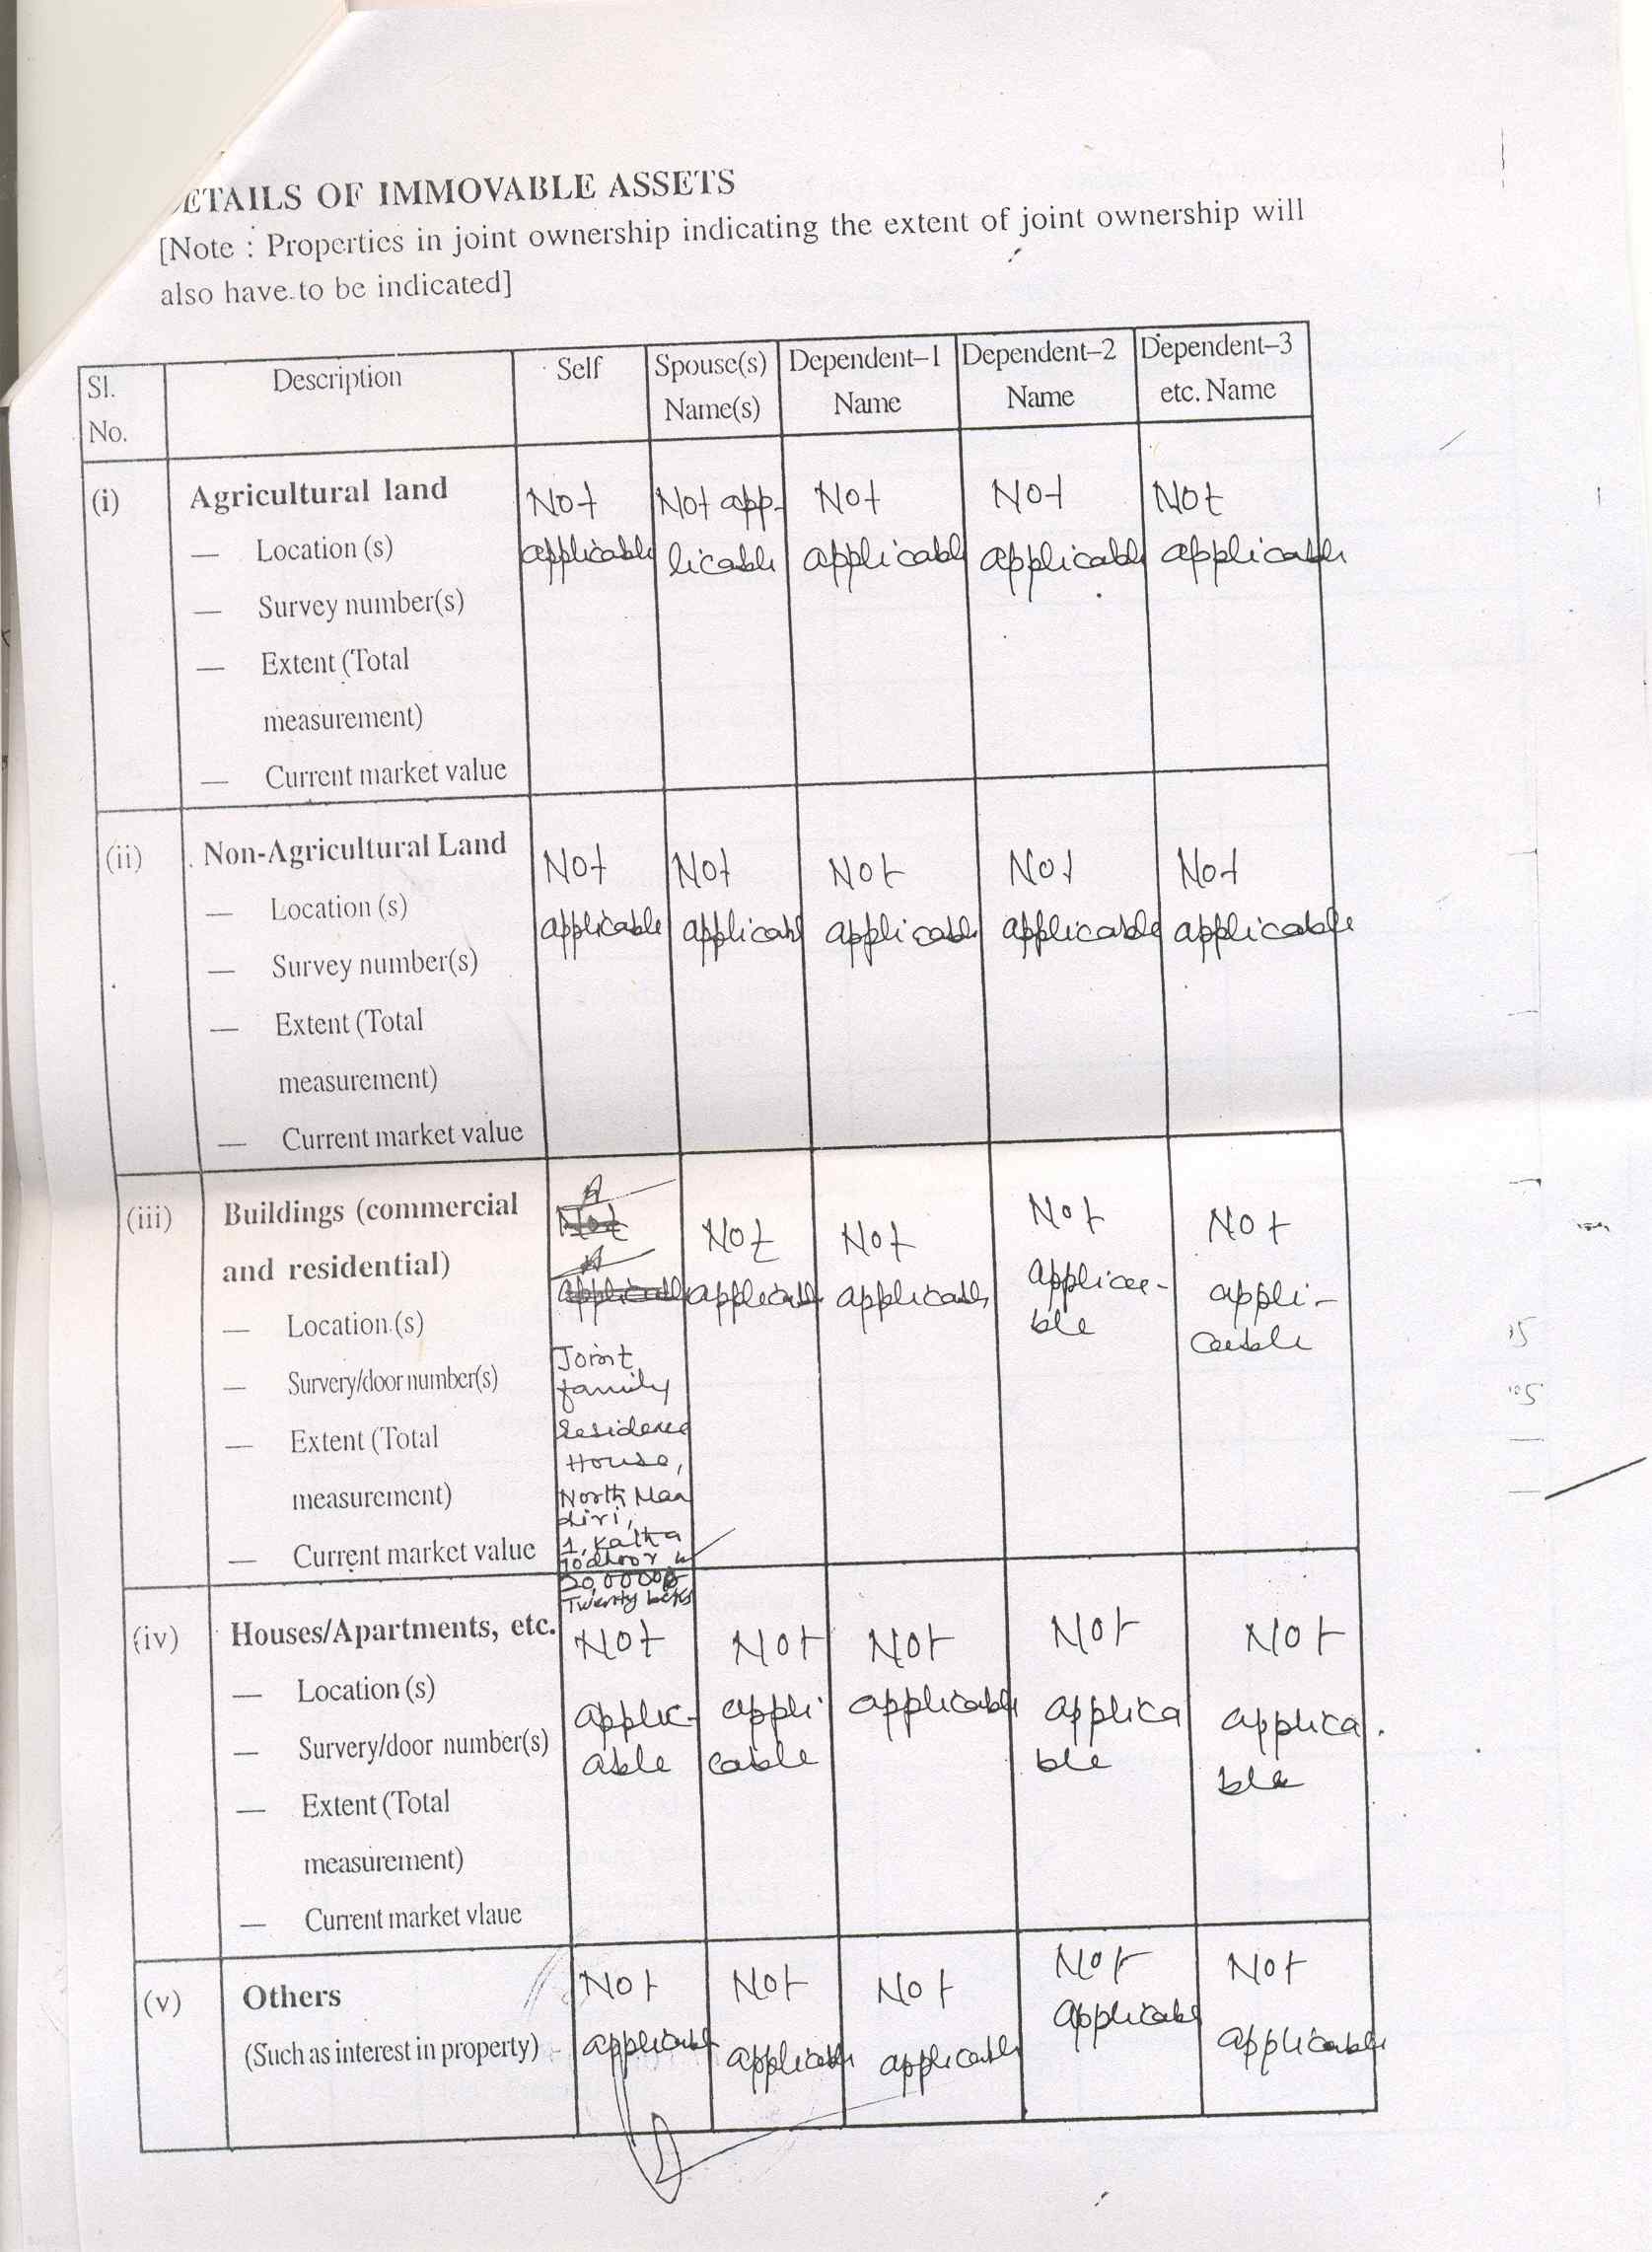 ETAILS OF IMMOVABLE ASSETS
[Note : Properties in joint ownership indicating the extent of joint ownership will
also have to be indicated]
Sl. No. Description Self Spouse(s) Name(s) Dependent–1 Name Dependent–2 Name Dependent–3 etc. Name
(i) Agricultural land
— Location (s)
— Survey number(s)
— Extent (Total
measurement)
— Current market value
Not
applicable
Not app-
licable
Not
applicable
Not
applicable
Not
applicable
(ii) Non-Agricultural Land
— Location (s)
— Survey number(s)
— Extent (Total
measurement)
— Current market value
Not
applicable
Not
applicable
Not
applicable
Not
applicable
Not
applicable
(iii) Buildings (commercial
and residential)
— Location (s)
— Survery/door number(s)
— Extent (Total
measurement)
— Current market value
Not
applicable
Joint
family
Residence
House,
North Man
diri,
1, Katha
Twenty
Not
applicable
Not
applicable
Not
applica-
ble
Not
appli-
cable
(iv) Houses/Apartments, etc.
— Location (s)
— Survery/door number(s)
— Extent (Total
measurement)
— Current market vlaue
Not
applic-
able
Not
appli-
cable
Not
applicable
Not
applica
ble
Not
applica-
ble
(v) Others
(Such as interest in property)
Not
applicable
Not
applicable
Not
applicable
Not
applicable
Not
applicable